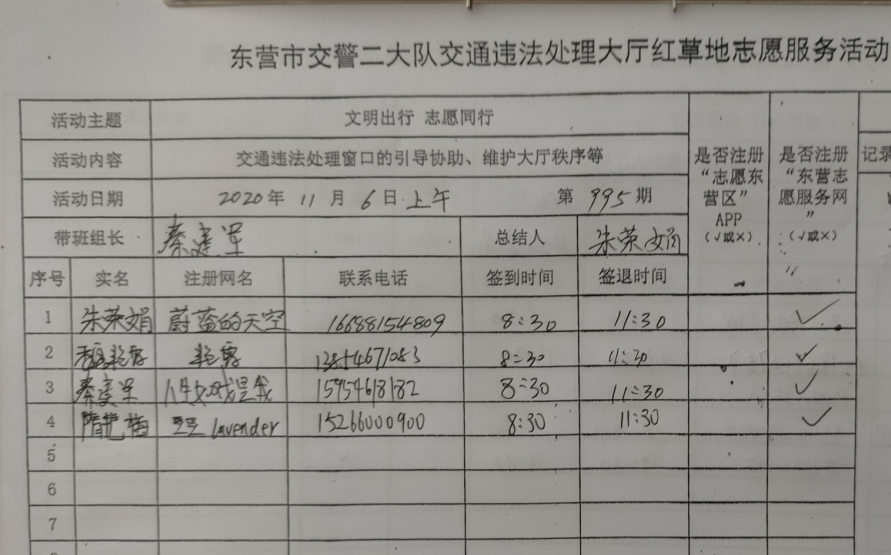 东营市交警二大队交通违法处理大厅红草地志愿服务活动
活动主题 文明出行 志愿同行
活动内容 交通违法处理窗口的引导协助、维护大厅秩序等
活动日期 2020年 11月 6日上午 第 995 期
带班组长 秦建军 总结人 朱荣娟
是否注册
“志愿东
营区”
APP
(√或×)
是否注册
“东营志
愿服务网
”
(√或×)
记录
序号 实名 注册网名 联系电话 签到时间 签退时间
1 朱荣娟 蔚蓝的天空 16688154809 8:30 11:30 ✓
2 8:30 11:30 ✓
3 秦建军 15954618182 8:30 11:30 ✓
4 隋艳梅 lavender 15266000900 8:30 11:30 ✓
5
6
7